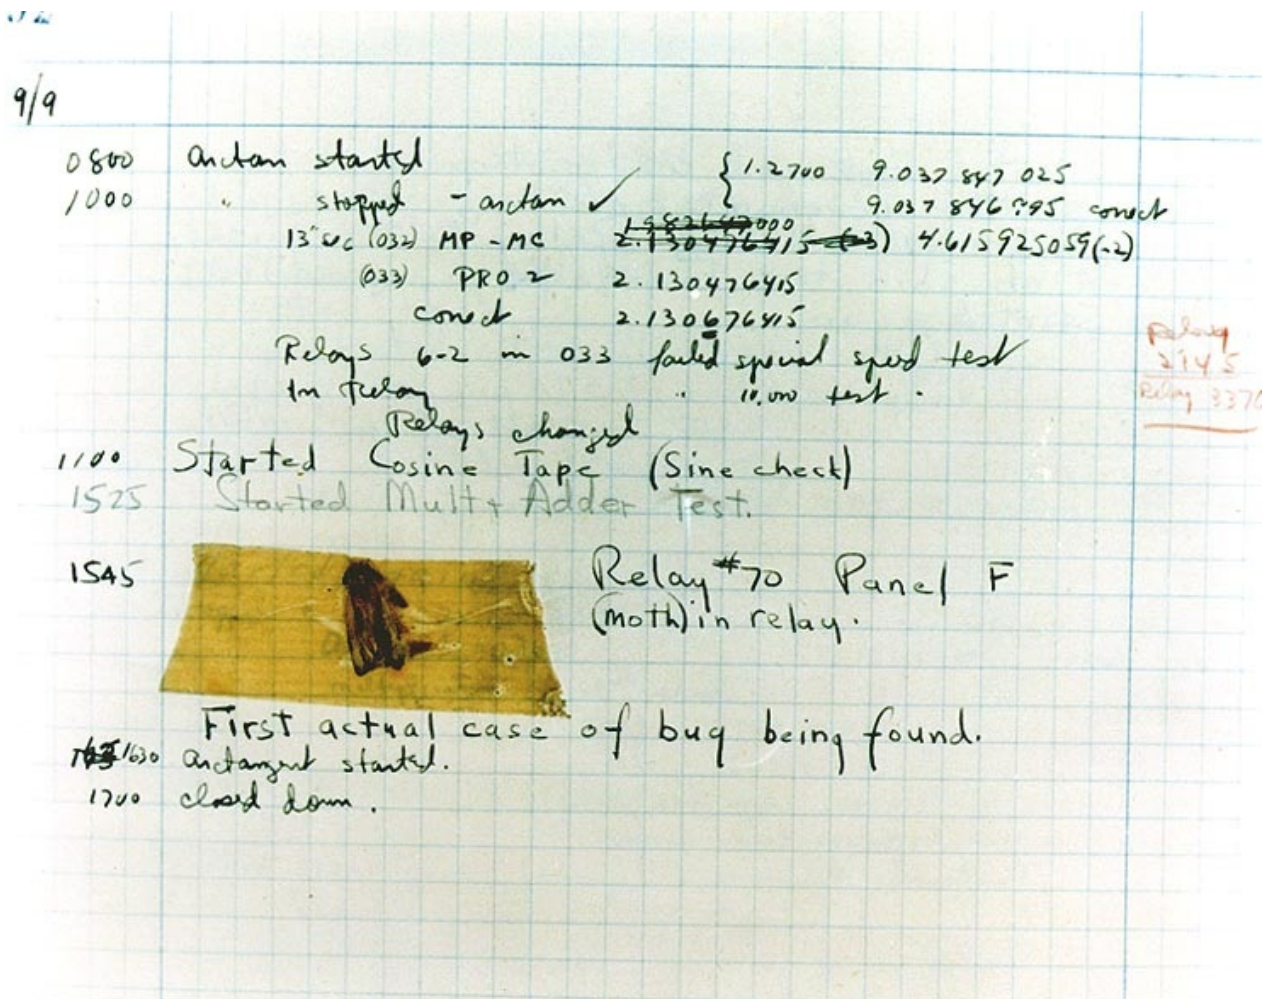 9/9
0800 arctan started { 1.2700 9.037 847 025
1000 " stopped - arctan ✓ 9.037 846 995 correct
13" sec (032) MP - MC 2.130476415 (-3) 4.615925059(-2)
(033) PRO 2 2.130476415
correct 2.130676415
Relays 6-2 in 033 failed special speed test
In Relay " 10.000 test .
Relay
2145
Relay 3370
Relays changed
1100 Started Cosine Tape (Sine check)
1525 Started Mult + Adder Test.
1545 Relay #70 Panel F
(moth) in relay.
First actual case of bug being found.
1630 arctangent started.
1700 closed down .